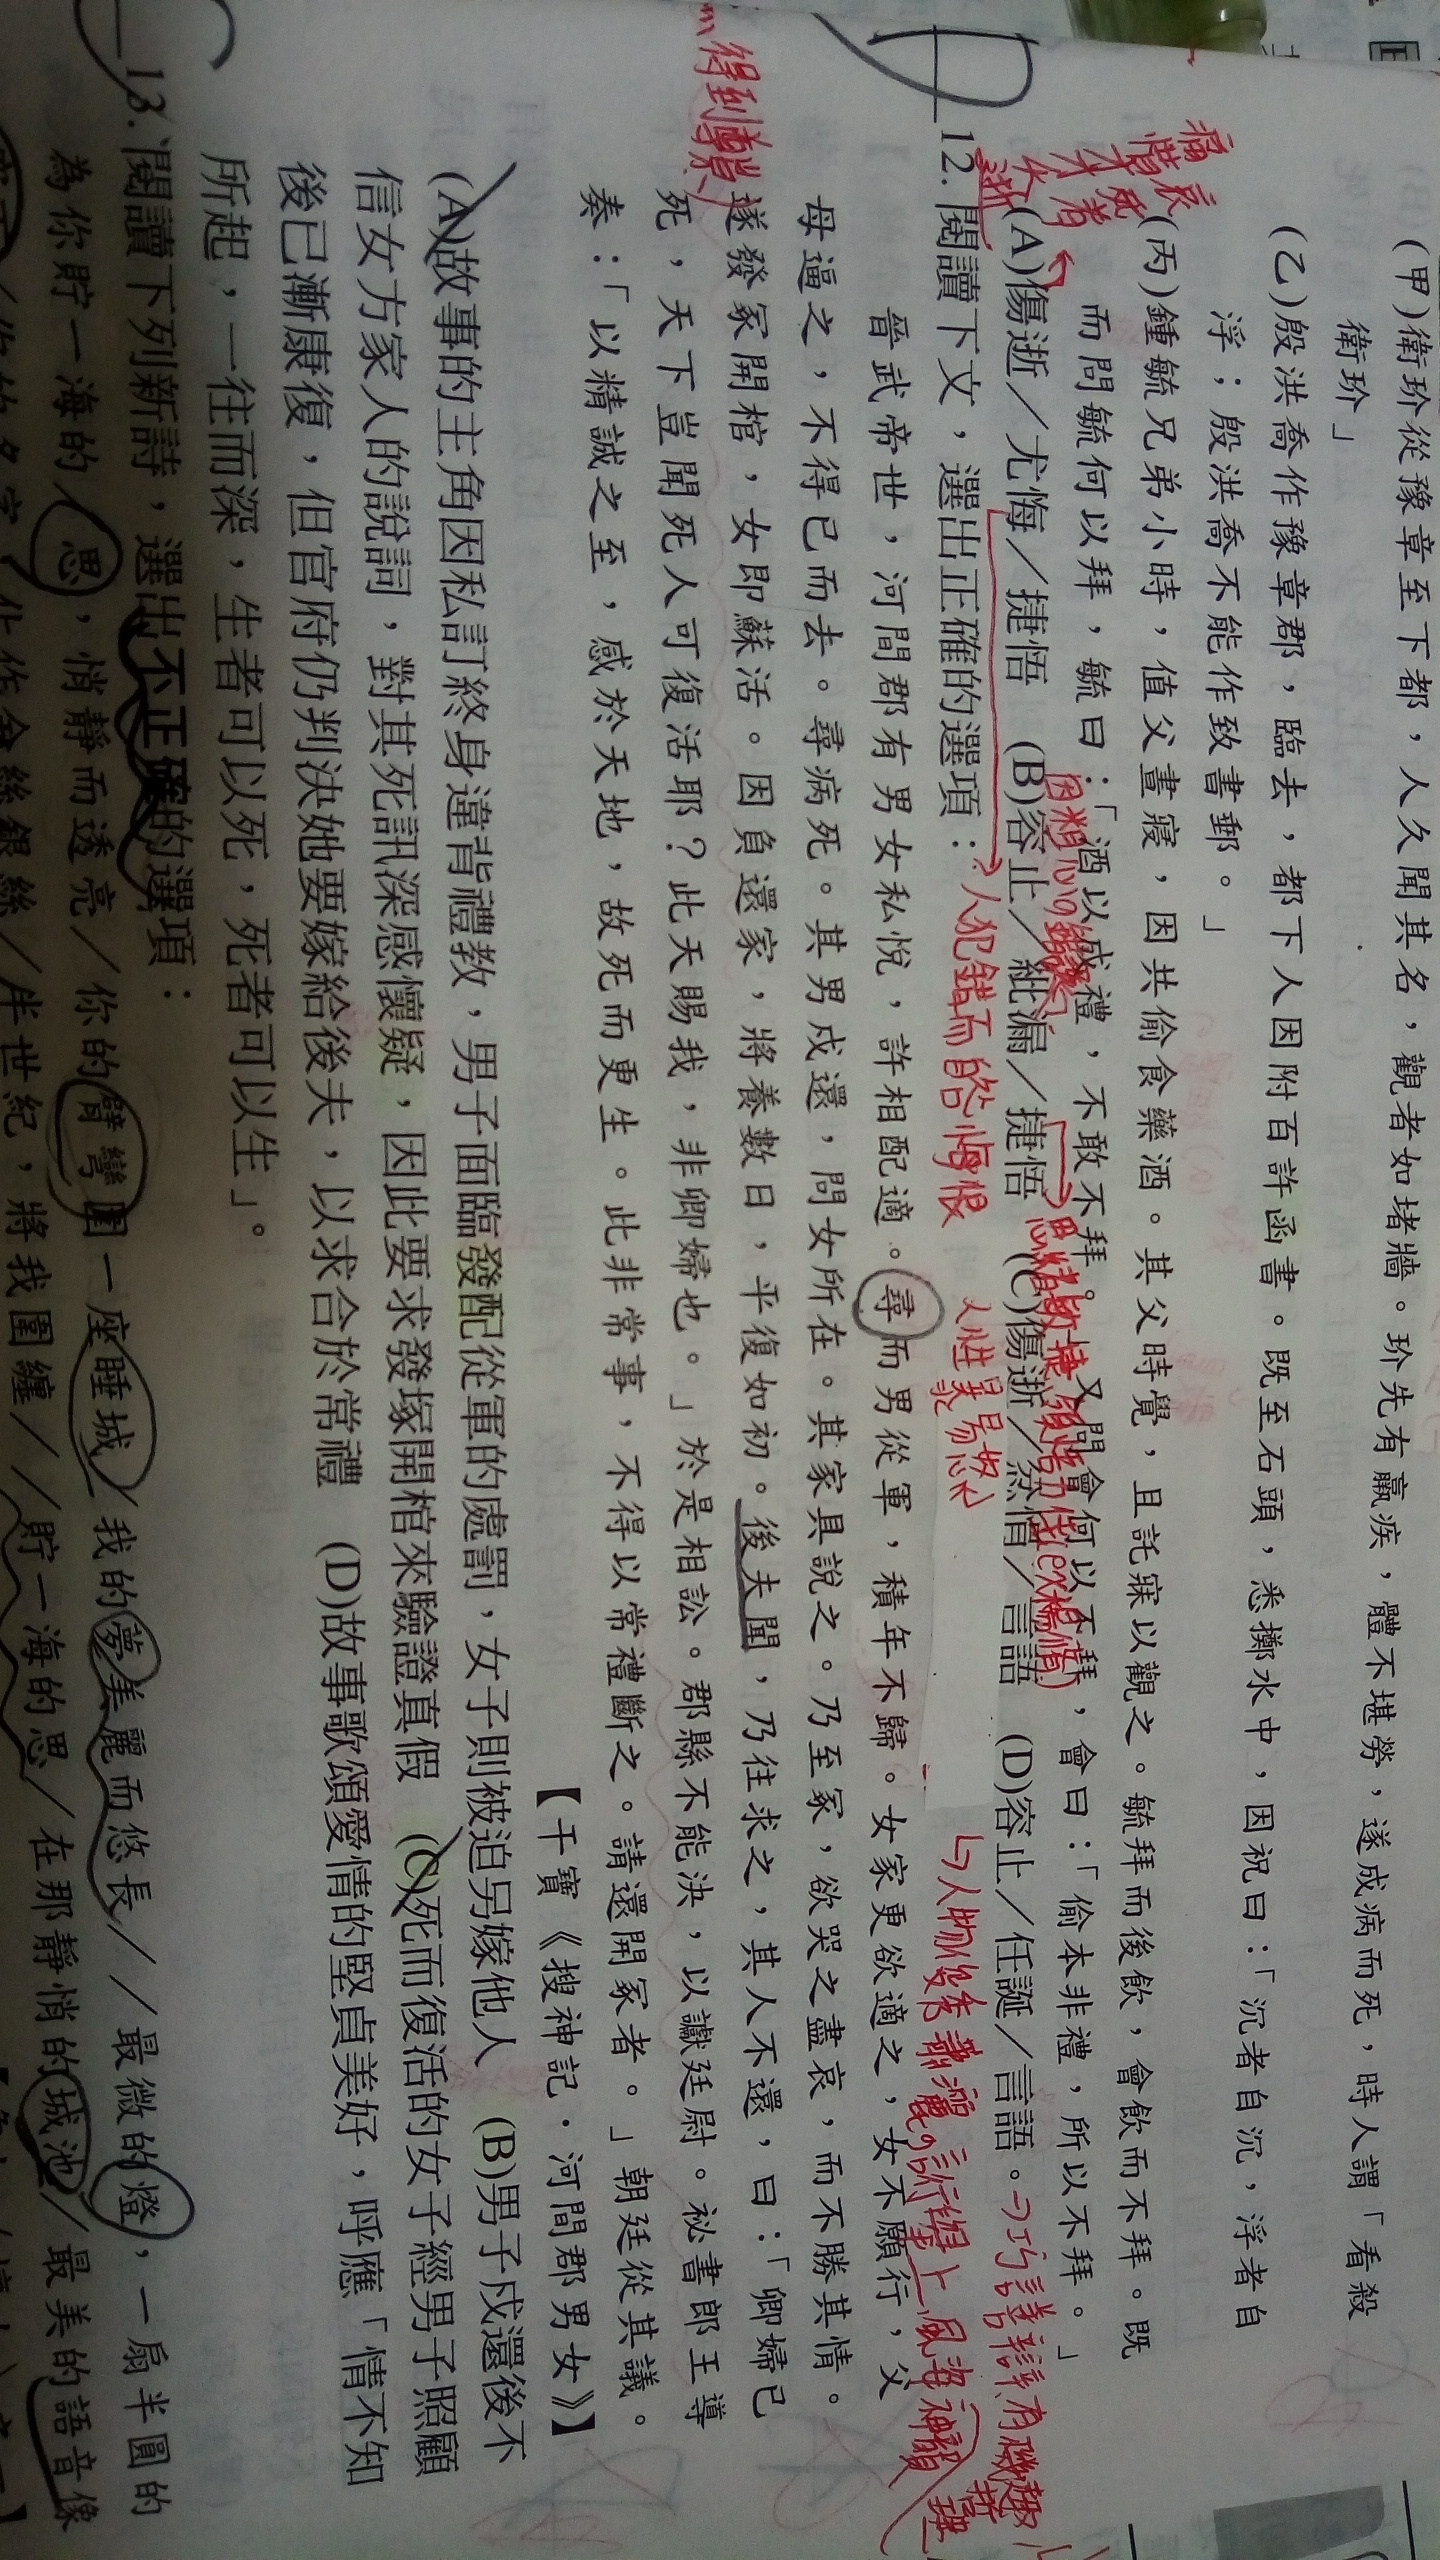 (甲)衛玠從豫章至下都，人久聞其名，觀者如堵牆。玠先有羸疾，體不堪勞，遂成病而死，時人謂「看殺
衛玠」
(乙)殷洪喬作豫章郡，臨去，都下人因附百許函書。既至石頭，悉擲水中，因祝曰：「沉者自沉，浮者自
浮；殷洪喬不能作致書郵。」
(丙)鍾毓兄弟小時，值父晝寢，因共偷食藥酒。其父時覺，且託寐以觀之。毓拜而後飲，會飲而不拜。既
而問毓何以拜，毓曰：「酒以成禮，不敢不拜。」又問會何以不拜，會曰：「偷本非禮，所以不拜。」
(A)傷逝／尤悔／捷悟　(B)容止／紕漏／捷悟　(C)傷逝／忿狷／言語　(D)容止／任誕／言語。
巧言善辯有機趣
人犯錯而的悔恨
人性暴易怒
人物俊秀瀟灑的
12.閱讀下文，選出正確的選項：
晉武帝世，河間郡有男女私悅，許相配適。尋而男從軍，積年不歸。女家更欲適之，女不願行，父
母逼之，不得已而去。尋病死。其男戍還，問女所在。其家具說之。乃至冢，欲哭之盡哀，而不勝其情。
遂發冢開棺，女即蘇活。因負還家，將養數日，平復如初。後夫聞，乃往求之，其人不還，曰：「卿婦已
死，天下豈聞死人可復活耶？此天賜我，非卿婦也。」於是相訟。郡縣不能決，以讞廷尉。祕書郎王導
奏：「以精誠之至，感於天地，故死而更生。此非常事，不得以常禮斷之。請還開冢者。」朝廷從其議。
【干寶《搜神記．河間郡男女》】
(A)故事的主角因私訂終身違背禮教，男子面臨發配從軍的處罰，女子則被迫另嫁他人　(B)男子戍還後不
信女方家人的說詞，對其死訊深感懷疑，因此要求發塚開棺來驗證真假　(C)死而復活的女子經男子照顧
後已漸康復，但官府仍判決她要嫁給後夫，以求合於常禮　(D)故事歌頌愛情的堅貞美好，呼應「情不知
所起，一往而深，生者可以死，死者可以生」。
13.閱讀下列新詩，選出不正確的選項：
為你貯一海的思，悄靜而透亮／你的臂彎圍一座睡城／我的夢美麗而悠長／／最微的燈，一扇半圓的
化作金絲銀絲／半世紀，將我圍纏／／貯一海的思／在那靜悄的城池／最美的語音像